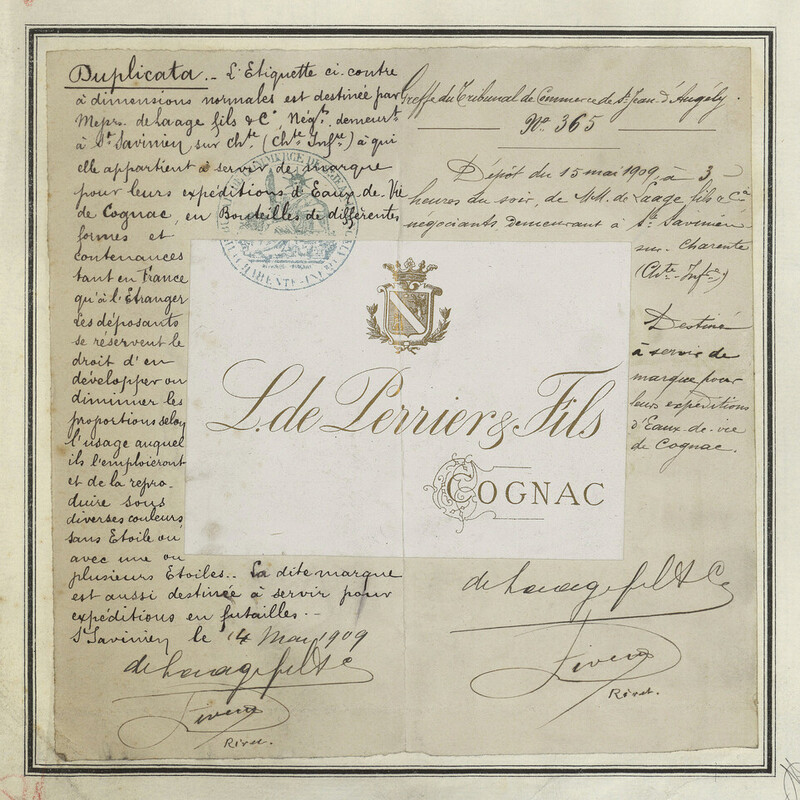 Duplicata._ L'Etiquette ci-contre
à dimensions normales est destinée par
Meprs. de Laage fils & Cº, Négts. demeurt
à St Savinien sur Chte (Chte Infre) à qui
elle appartient à servir de marque
pour leurs expéditions d'Eaux-de-Vie
de Cognac, en Bouteilles de différentes
formes et
contenances
tant en France
qu'à l'Etranger
Les déposants
se réservent le
droit d'en
développer ou
diminuer les
proportions selon
l'usage auquel
ils l'emploieront
et de la repro-
duire sous
diverses couleurs,
sans Etoile ou
avec une ou
plusieurs Etoiles.. La dite marque
est aussi destinée à servir pour
expéditions en futailles.-
St Savinien le 14 Mai 1909
de Laage fils & Co
Rivet.
Greffe du Tribunal de Commerce de St Jean d'Angély.
Nº 365
Dépôt du 15 mai 1909, à 3
heures du soir, de MM. de Laage fils & Cie
négociants demeurant à St. Savinien-
sur-Charente
(Chte-Infre)
Destiné
à servir de
marque pour
leurs expéditions
d'Eaux-de-vie
de Cognac.
L. de Perrier & Fils
COGNAC
de Laage fils & Co
Rivet.